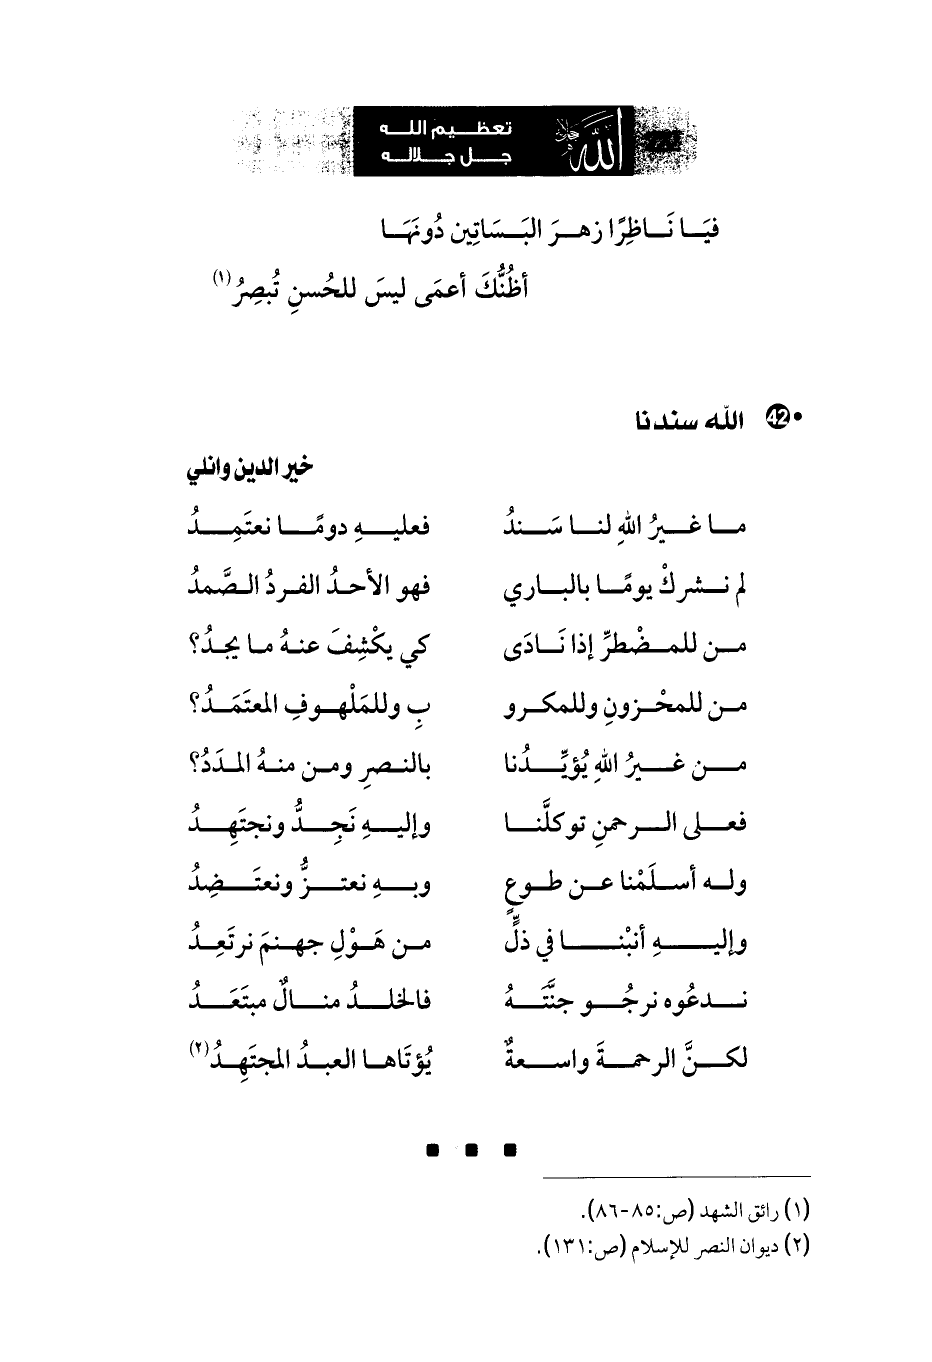 تعظيم الله
جل جلاله
الله
فيَا نَاظِرًا زهرَ البَسَاتِين دُونَهَا
أظُنُّكَ أعمَى ليسَ للحُسنِ تُبصِرُ(١)
•42 الله سندنا
خير الدين وانلي
ما غيرُ اللهِ لنا سَندُ فعليهِ دومًا نعتَمِدُ
لم نشركْ يومًا بالباري فهو الأحدُ الفردُ الصَّمدُ
من للمضْطرِّ إذا نَادَى كي يكْشِفَ عنهُ ما يجدُ؟
من للمحْزونِ وللمكرو بِ وللمَلْهوفِ المعتَمَدُ؟
من غيرُ اللهِ يُؤيِّدُنا بالنصرِ ومن منهُ المدَدُ؟
فعلى الرحمنِ توكلَّنا وإليهِ نَجِدُّ ونجتَهِدُ
وله أسلَمْنا عن طوعٍ وبهِ نعتزُّ ونعتَضِدُ
وإليهِ أنبْنا في ذلٍّ من هَوْلِ جهنمَ نرتَعِدُ
ندعُوه نرجُو جنَّتَهُ فالخلدُ منالٌ مبتَعَدُ
لكنَّ الرحمةَ واسعةٌ يُؤتَاها العبدُ المجتَهِدُ(٢)
(١) رائق الشهد (ص:٨٥-٨٦).
(٢) ديوان النصر للإسلام (ص:١٣١).